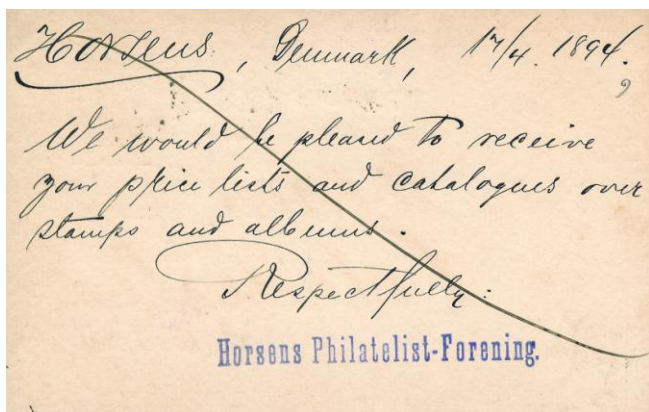 Horsens, Denmark, 17/4. 1894.
We would be pleased to receive
your price lists and catalogues over
stamps and albums.
Respectfully:
Horsens Philatelist-Forening.